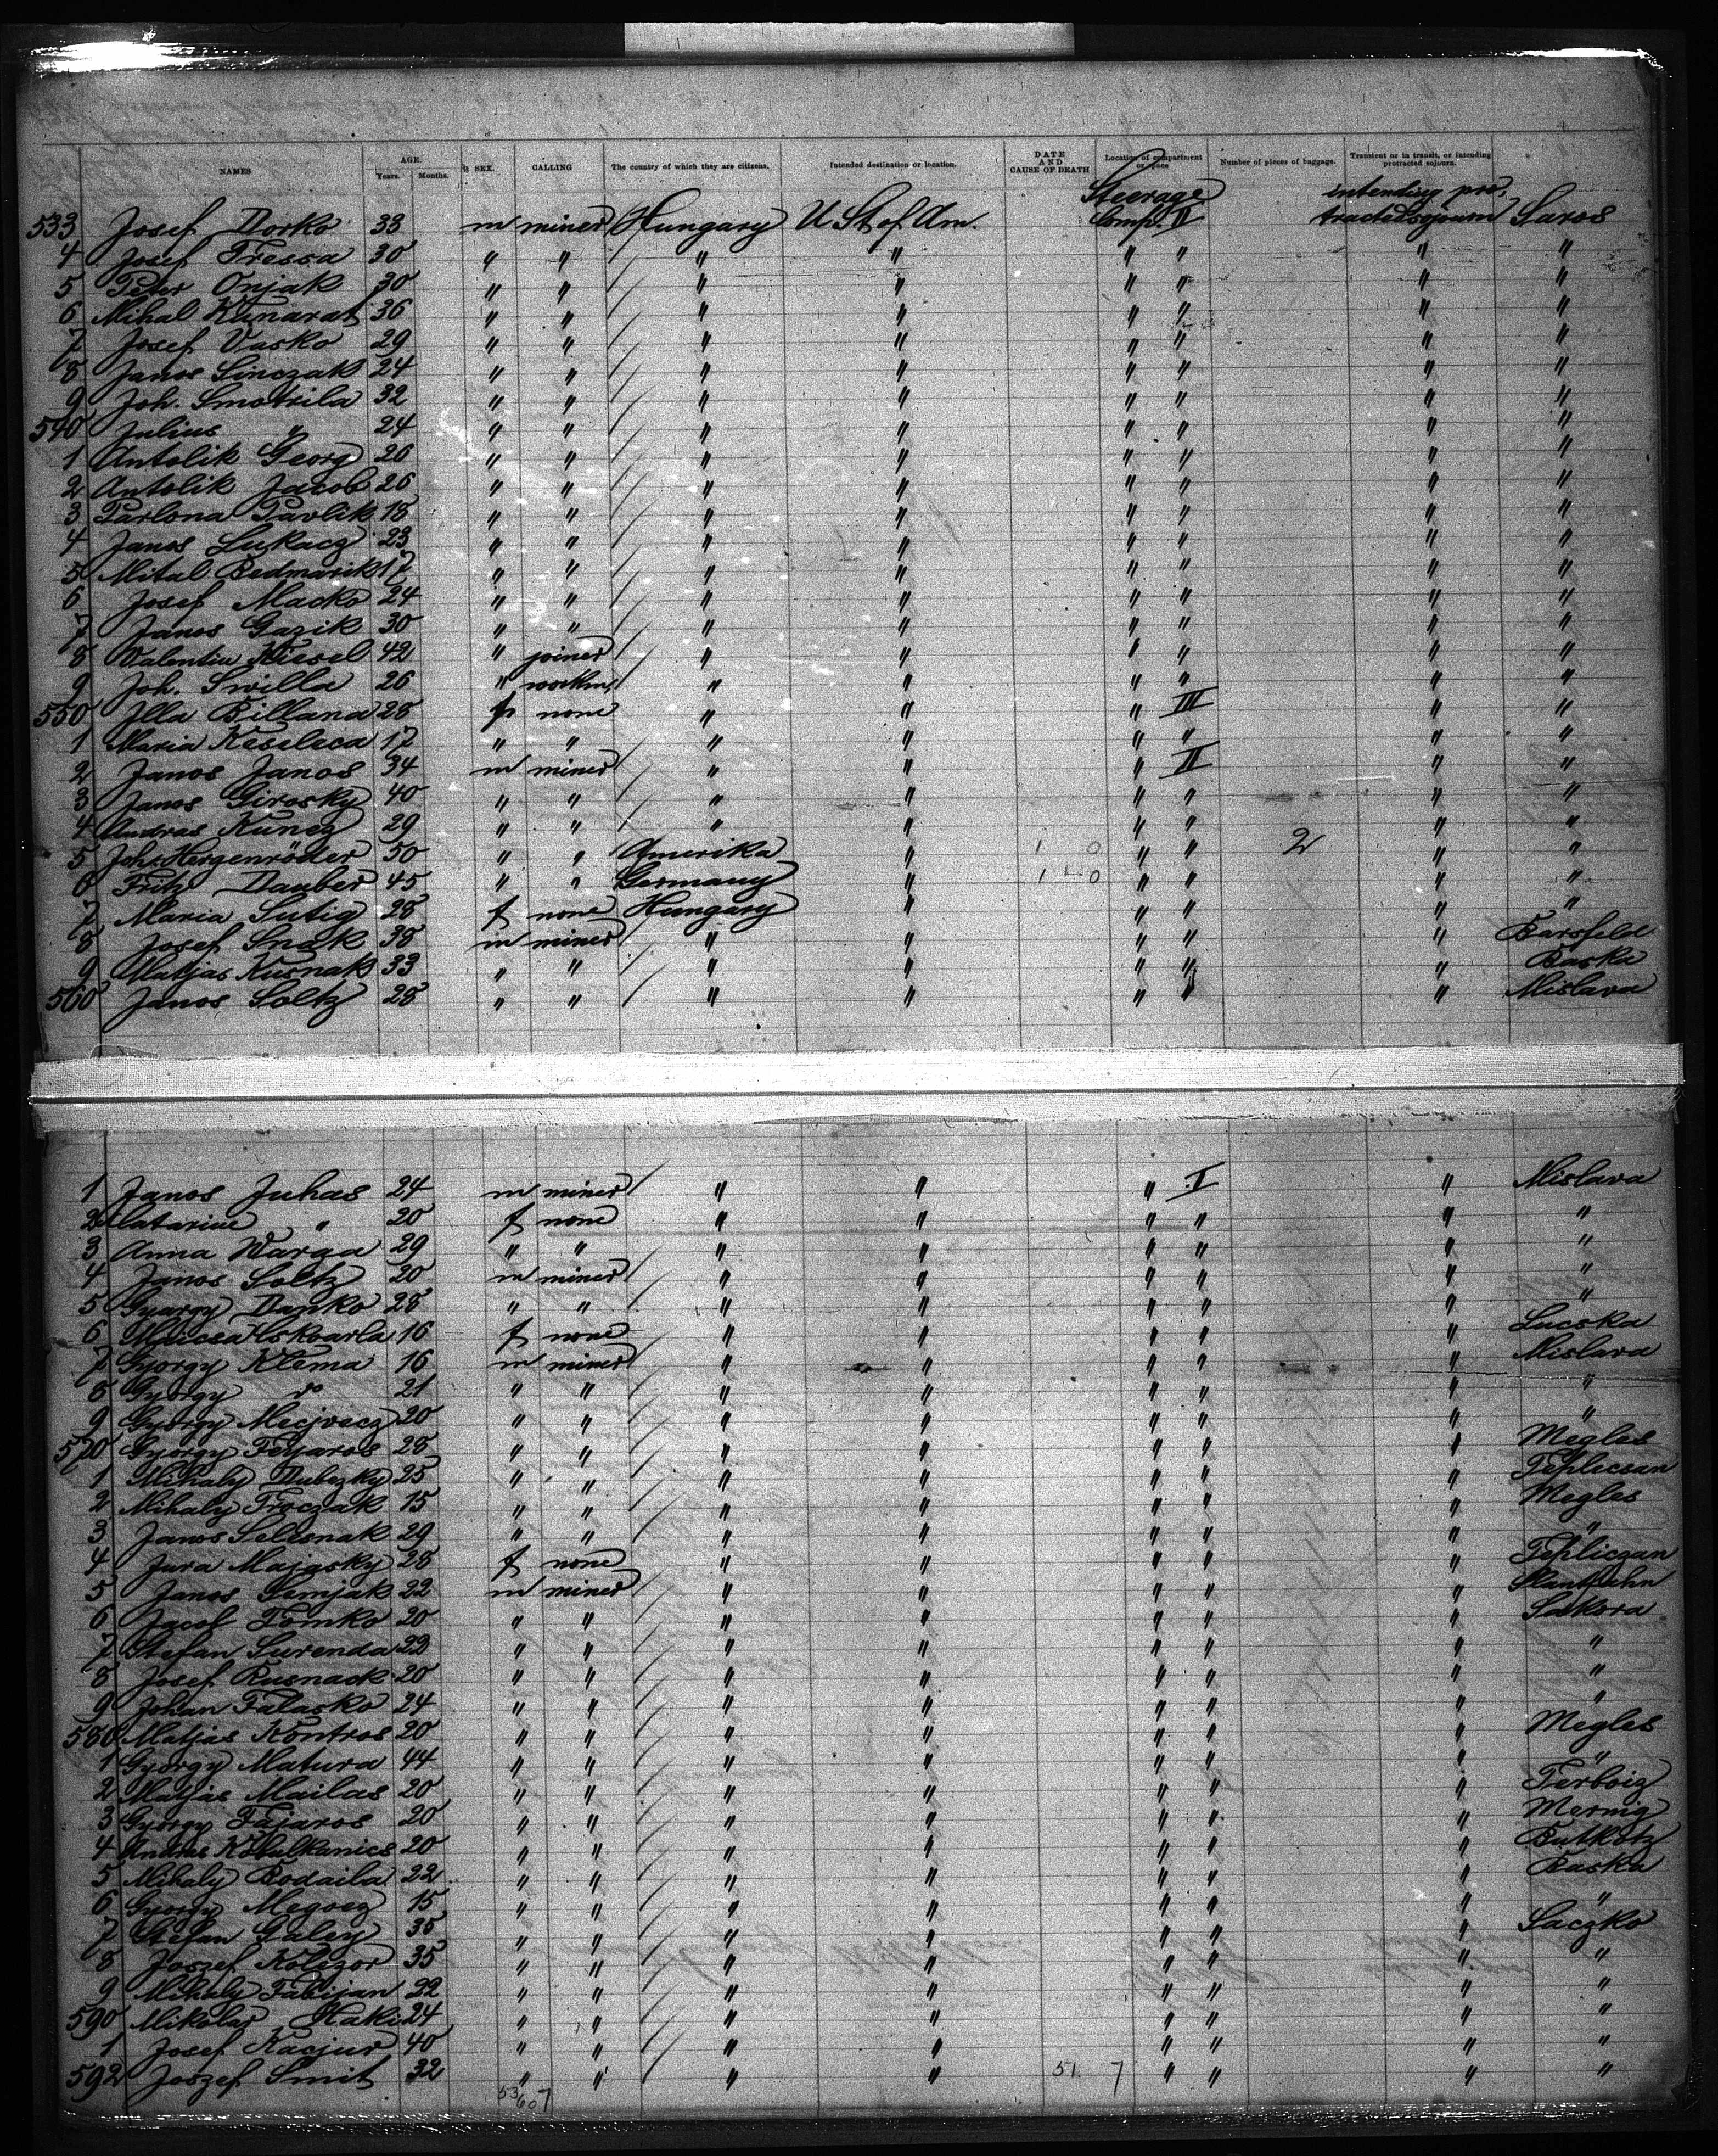 NAMES AGE. Years. Months. SEX. CALLING The country of which they are citizens. Intended destination or location. DATE AND CAUSE OF DEATH Location of compartment or space Number of pieces of baggage. Transient or in transit, or intending protracted sojourn.
533 Josef Dorko 33 m miner Hungary U St. of Am. Steerage Comp. II intending protracted sojourn Saros
4 Josef Tressa 30 " " " " " " " "
5 Peter Onjak 30 " " " " " " " "
6 Mihal Kunarat 36 " " " " " " " "
7 Josef Vasko 29 " " " " " " " "
8 Janos Sinczak 24 " " " " " " " "
9 Joh. Smotrila 32 " " " " " " " "
540 Julius " 24 " " " " " " " "
1 Antolik Georg 26 " " " " " " " "
2 Antolik Jacob 26 " " " " " " " "
3 Parlona Pavlik 18 " " " " " " " "
4 Janos Lukacz 23 " " " " " " " "
5 Mital Bedmarik 17 " " " " " " " "
6 Josef Macko 24 " " " " " " " "
7 Janos Gazik 30 " " " " " " " "
8 Valentin Kiesel 42 " joiner " " " " " "
9 Joh. Swilla 26 " workm. " " " " " "
550 Illa Billana 28 f none " " " III " "
1 Maria Keseleca 17 " " " " " " " "
2 Janos Janos 34 m miner " " " II " "
3 Janos Girosky 40 " " " " " " " "
4 Andras Kuncz 29 " " " " " " " "
5 Joh. Hergenröder 50 " " Amerika " 1 0 " " 2 " "
6 Fritz Dauber 45 " " Germany " 1 - 0 " " " "
7 Maria Sutig 28 f none Hungary " " " " "
8 Josef Snak 38 m miner " " " " " Barsfeld
9 Matjas Kusnak 33 " " " " " " " Baska
560 Janos Soltz 28 " " " " " " " Mislava
1 Janos Juhas 24 m miner " " " I " Mislava
2 Catarine " 20 f none " " " " " "
3 Anna Warga 29 " " " " " " " "
4 Janos Soltz 20 m miner " " " " " "
5 Gyorgy Danko 28 " " " " " " " "
6 16 f none " " " " " Lucska
7 Gyorgy Klema 16 m miner " " " " " Mislava
8 György do 21 " " " " " " " "
9 György Mecjvecz 20 " " " " " " " "
570 György Fejaros 28 " " " " " " " Megles
1 Mihaly Dubezky 25 " " " " " " " Tephcsan
2 Mihaly Troczak 15 " " " " " " " Megles
3 Janos Selesnak 29 " " " " " " " "
4 Jura Majasky 28 f none " " " " " Tepliczan
5 Janos Semjak 22 m miner " " " " "
6 Jacob Tomko 20 " " " " " " " Sakora
7 Stefan Surenda 22 " " " " " " " "
8 Josef Rusnack 20 " " " " " " " "
9 Johan Talasko 24 " " " " " " " "
580 Matjas Kontros 20 " " " " " " " Megles
1 György Matura 44 " " " " " " " "
2 Matjas Mailas 20 " " " " " " " Terboiz
3 György Fajaros 20 " " " " " " " Mernig
4 Andras 20 " " " " " " " Butkotz
5 Mihaly Bodaila 22 " " " " " " " Baska
6 György Megvez 15 " " " " " " " "
7 Stefan Galey 35 " " " " " " " Saczko
8 Joszef Kolezor 35 " " " " " " " "
9 Mihaly Fabijan 22 " " " " " " " "
590 Mikolas Haki 24 " " " " " " " "
1 Josef Kacjur 40 " " " " " " " "
592 Joszef Smit 32 " " " " 51. 7 " " " "
53/607